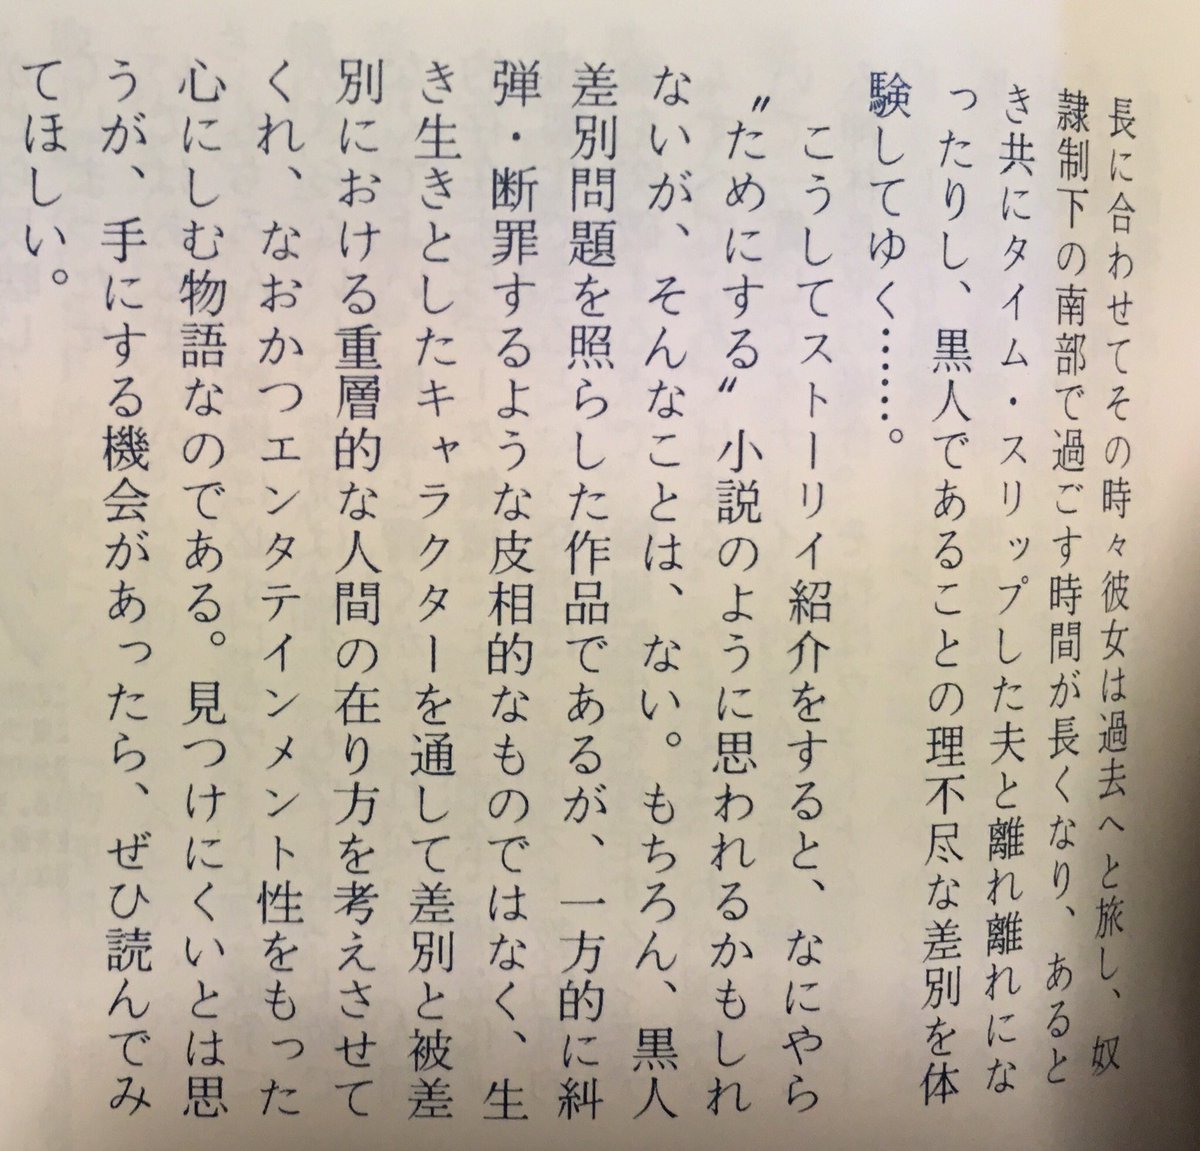 長に合わせてその時々彼女は過去へと旅し、奴
隷制下の南部で過ごす時間が長くなり、あると
き共にタイム・スリップした夫と離れ離れにな
ったりし、黒人であることの理不尽な差別を体
験してゆく………。
こうしてストーリイ紹介をすると、なにやら
〝ためにする〟小説のように思われるかもしれ
ないが、そんなことは、ない。もちろん、黒人
差別問題を照らした作品であるが、一方的に糾
弾・断罪するような皮相的なものではなく、生
き生きとしたキャラクターを通して差別と被差
別における重層的な人間の在り方を考えさせて
くれ、なおかつエンタテインメント性をもった
心にしむ物語なのである。見つけにくいとは思
うが、手にする機会があったら、ぜひ読んでみ
てほしい。